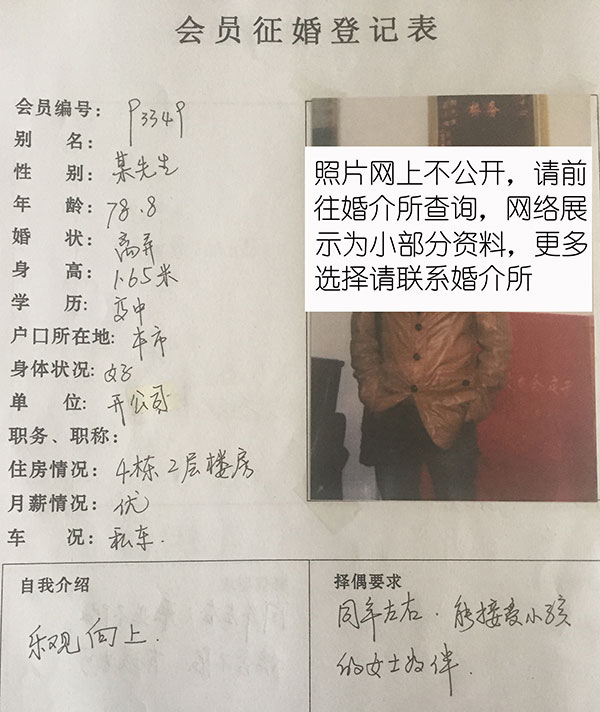 会员征婚登记表
会员编号: P3349
别 名:
性 别: 某先生
年 龄: 78.8
婚 状: 离异
身 高: 1.65米
学 历: 高中
户口所在地: 本市
身体状况: 好
单 位: 开公司
职务、职称:
住房情况: 4栋2层楼房
月薪情况: 优
车 况: 私车.
照片网上不公开，请前
往婚介所查询，网络展
示为小部分资料，更多
选择请联系婚介所
自我介绍
乐观向上.
择偶要求
同年左右.能接受小孩
的女士为伴.